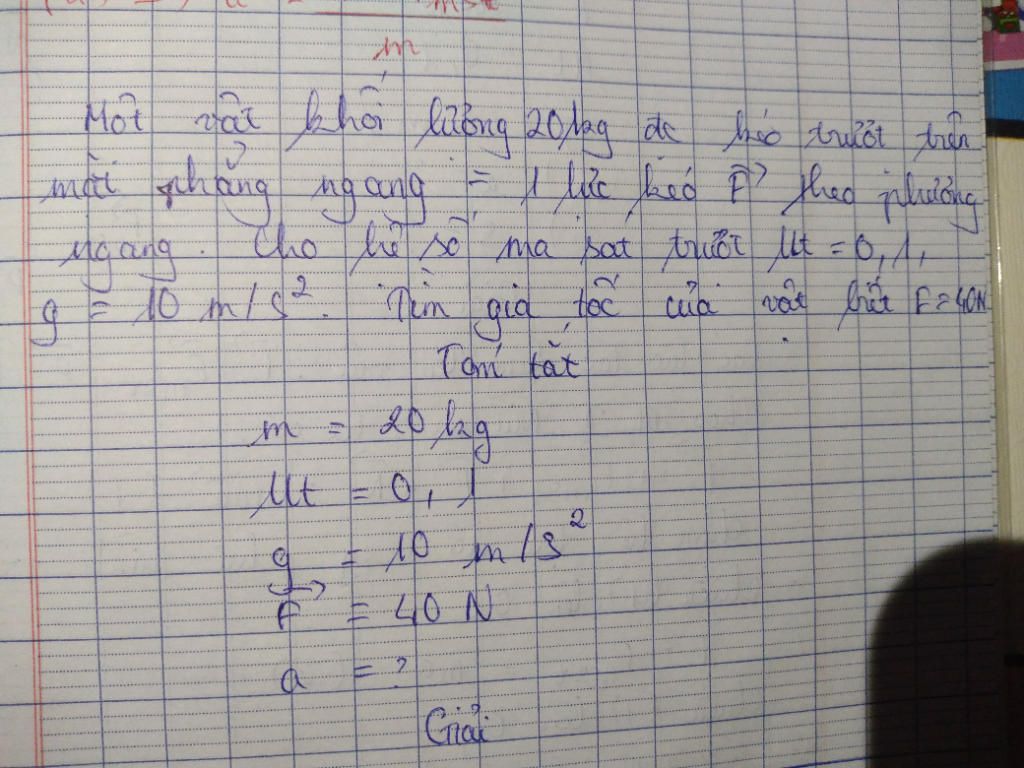 m
Một vật khối lượng 20kg đc kéo trượt trên
mặt phẳng ngang = 1 lực kéo F theo phương
ngang. Cho hệ số ma sát trượt μt = 0,1,
g = 10 m/s². Tìm gia tốc của vật biết F = 40N
Tóm tắt
m = 20kg
μt = 0,1
g = 10 m/s²
F = 40 N
a = ?
Giải